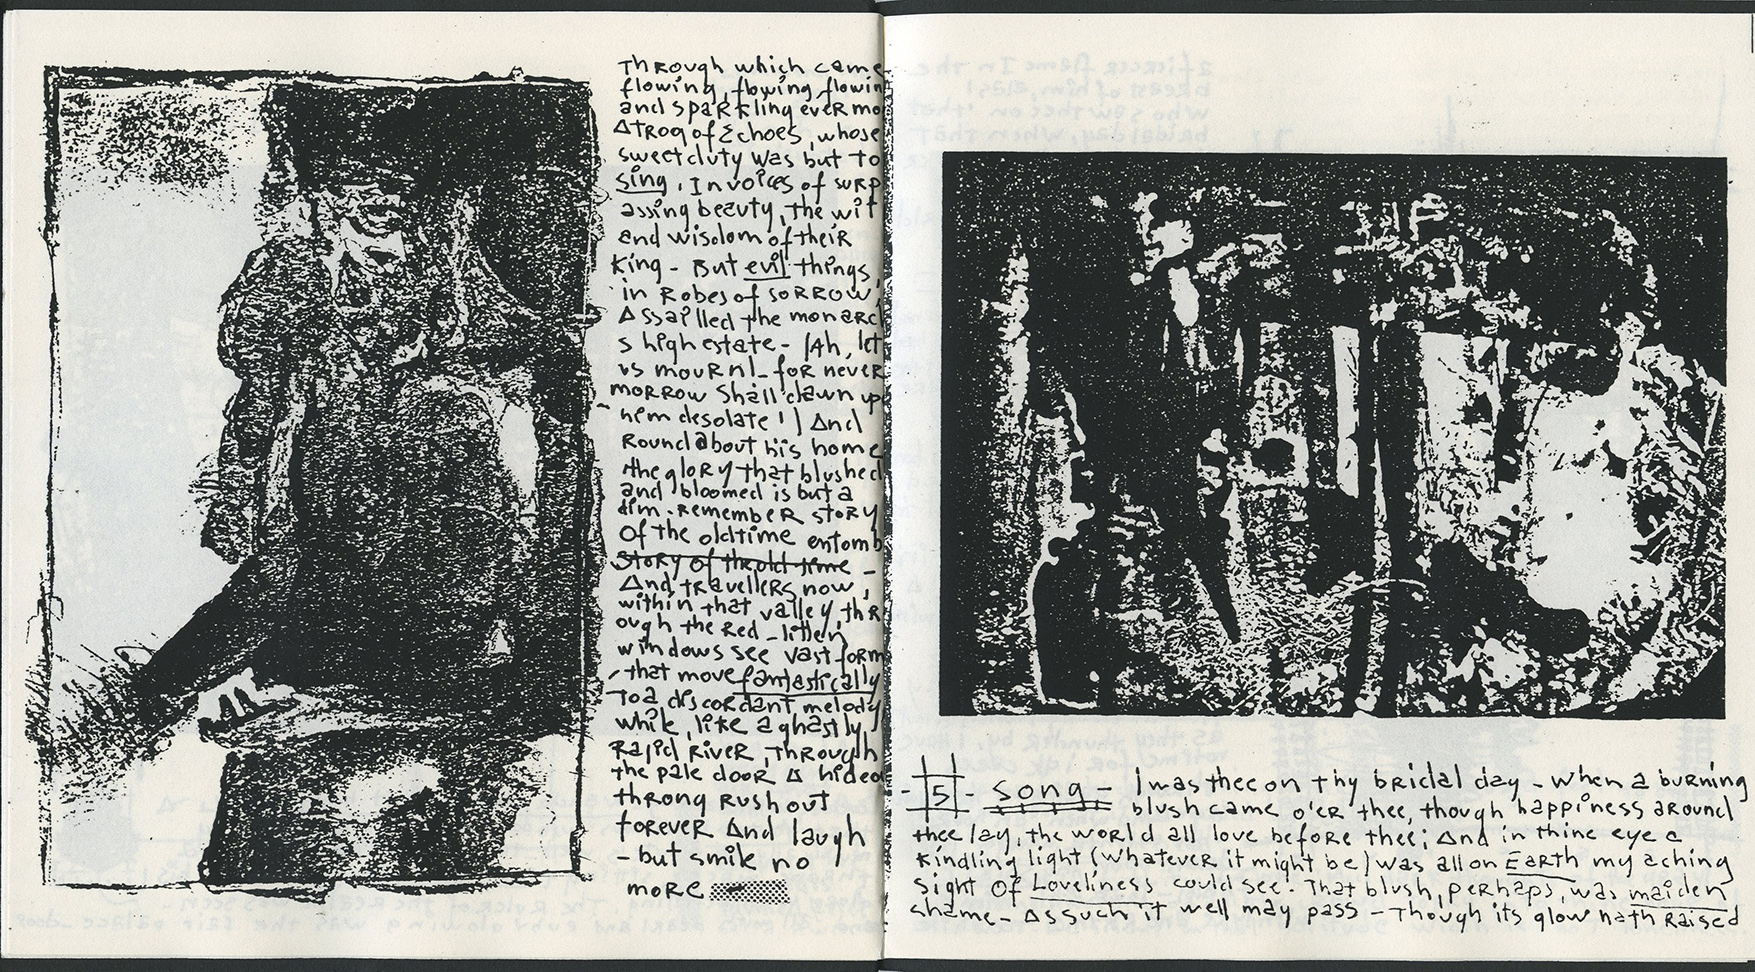 Through which came
flowing, flowing, flowin
and sparkling evermo
A troop of Echoes, whose
sweet duty was but to
sing. In voices of surp
assing beauty, the wit
and wisdom of their
King - But evil things,
in Robes of SORROW,
Assailled the monarc
s high estate - (Ah, let
us mourn! - for never
morrow shall dawn up
him desolate!) And
Round about his home
the glory that blushed
and bloomed is but a
dim-remember story
of the oldtime entomb
story of the old time -
And travellers now,
within that valley, thr
ough the Red-litten
windows see vast form
that move fantastically
To a discordant melody
while, like a ghastly
Rapid River, Through
the pale door A hideo
throng Rush out
forever And laugh
- but smile no
more
- 5 - song - I was thee on thy bridal day - when a burning
blush came o'er thee, though happiness around
thee lay, the world all love before thee; And in thine eye a
Kindling light (whatever it might be) was all on Earth my aching
sight of Loveliness could see. That blush, perhaps, was maiden
shame - As such it well may pass - Though its glow hath Raised